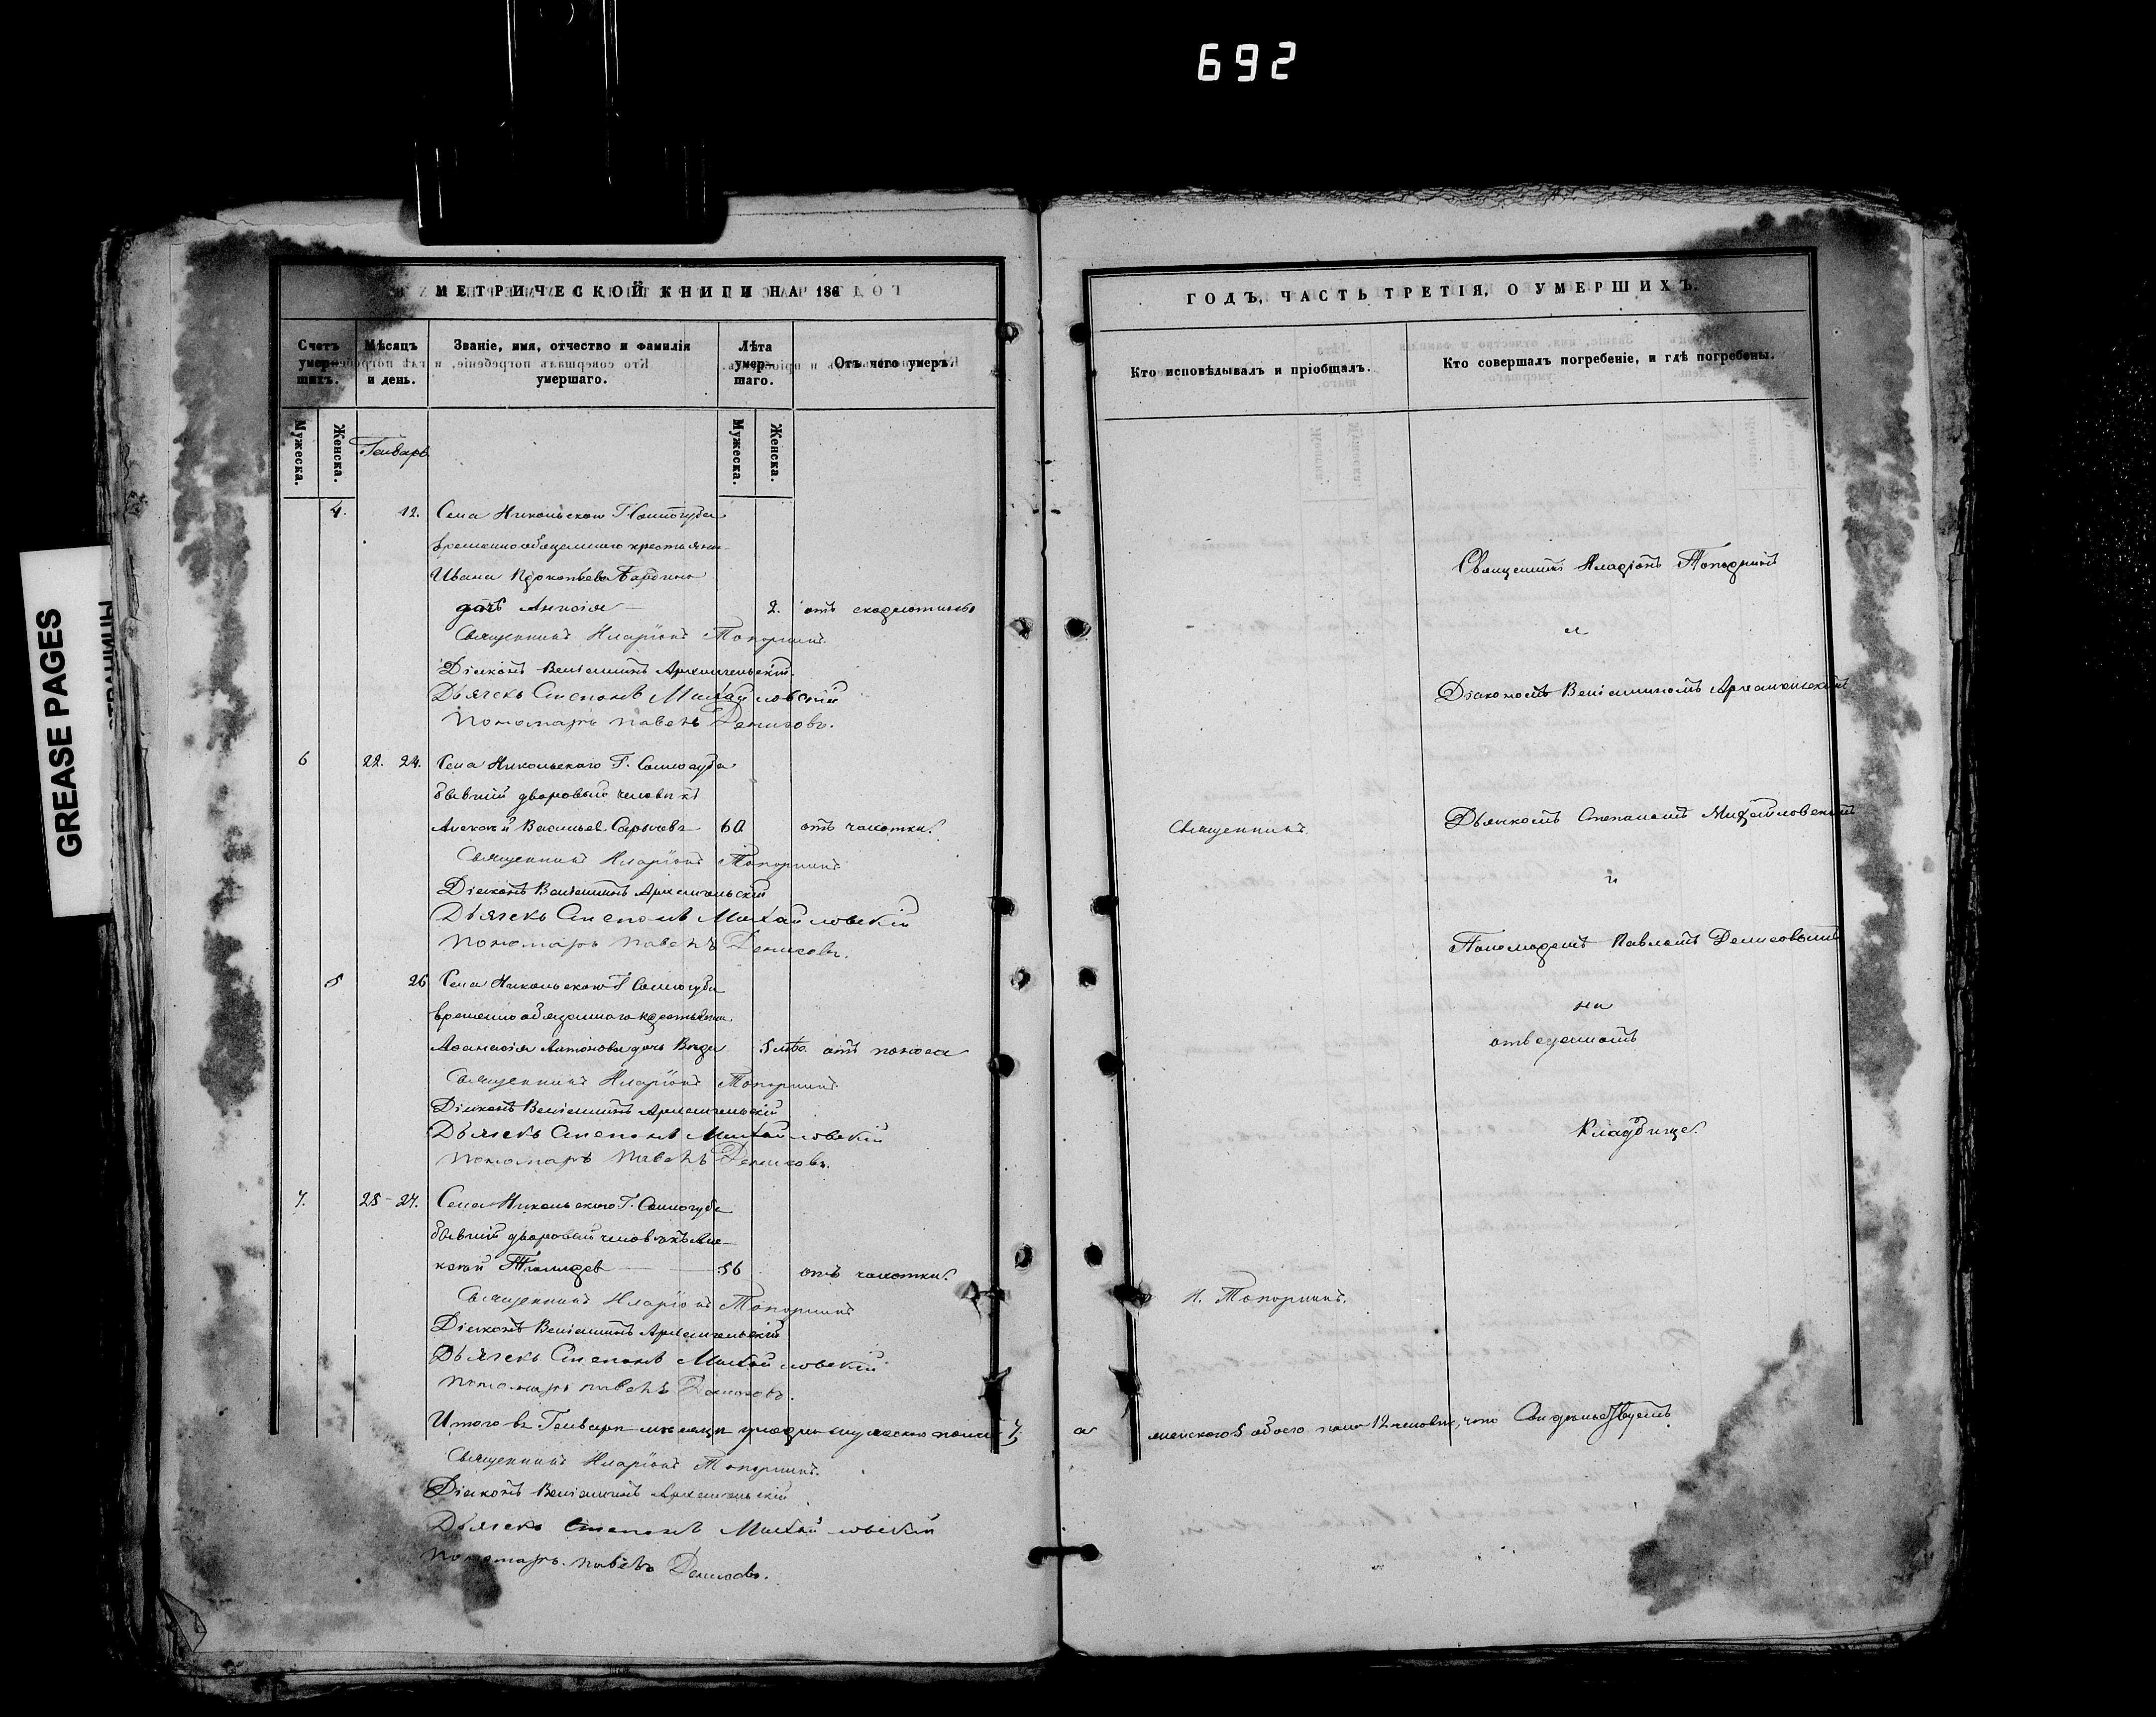 692
GREASE PAGES
МЕТРИЧЕСКОЙ КНИГИ НА 186
Счетъ умер-шихъ.
Мѣсяцъ и день.
Званіе, имя, отчество и фамилія умершаго.
Лѣта умер-шаго.
Отъ чего умеръ.
Мужеска.
Женска.
Генварь
Мужеска.
Женска.
4. 12. Села Никольскаго Г. Соллогуба
временно обязаннаго крестьянина
Ивана Прокопьева
дочь 2. отъ скарлатины
Священникъ Иларіонъ Топорнинъ
Діаконъ Веніаминъ Архангельскій
Дьячекъ Степанъ Михайловскій
Пономарь Павелъ Денисовъ.
6 22. 24. Села Никольскаго Г. Соллогуба
бывшій дворовый человѣкъ
Алексѣй Васильев 60 отъ чахотки.
Священникъ Иларіонъ Топорнинъ
Діаконъ Веніаминъ Архангельскій
Дьячекъ Степанъ Михайловскій
Пономарь Павелъ Денисовъ.
5 26 Села Никольскаго Г. Соллогуба
временно обязаннаго крестьянина
Антонова дочь отъ поноса
Священникъ Иларіонъ Топорнинъ
Діаконъ Веніаминъ Архангельскій
Дьячекъ Степанъ Михайловскій
Пономарь Павелъ Денисовъ.
7. 25 - 27. Села Никольскаго Г. Соллогуба
бывшій дворовый человѣкъ Але-
ксѣй 56 отъ чахотки.
Священникъ Иларіонъ Топорнинъ
Діаконъ Веніаминъ Архангельскій
Дьячекъ Степанъ Михайловскій
Пономарь Павелъ Денисовъ.
Итого въ Генварѣ мѣсяцѣ умерло мужеска пола 7,
Священникъ Иларіонъ Топорнинъ.
Діаконъ Веніаминъ Архангельскій
Дьячекъ Степанъ Михайловскій
Пономарь Павелъ Денисовъ.
ГОДЪ, ЧАСТЬ ТРЕТІЯ, О УМЕРШИХЪ.
Кто исповѣдывалъ и пріобщалъ.
Кто совершалъ погребеніе, и гдѣ погребены.
Священникъ Иларіонъ Топорнинъ
и
Діакономъ Веніаминомъ Архангельскимъ
Священникъ
Дьячкомъ Степаномъ Михайловскимъ
и
Пономаремъ Павломъ Денисовымъ
на
отведенномъ
Кладбище.
И. Топорнинъ.
а женскаго 5 обоего пола 12 человѣк, что Свидѣтельствуемъ.